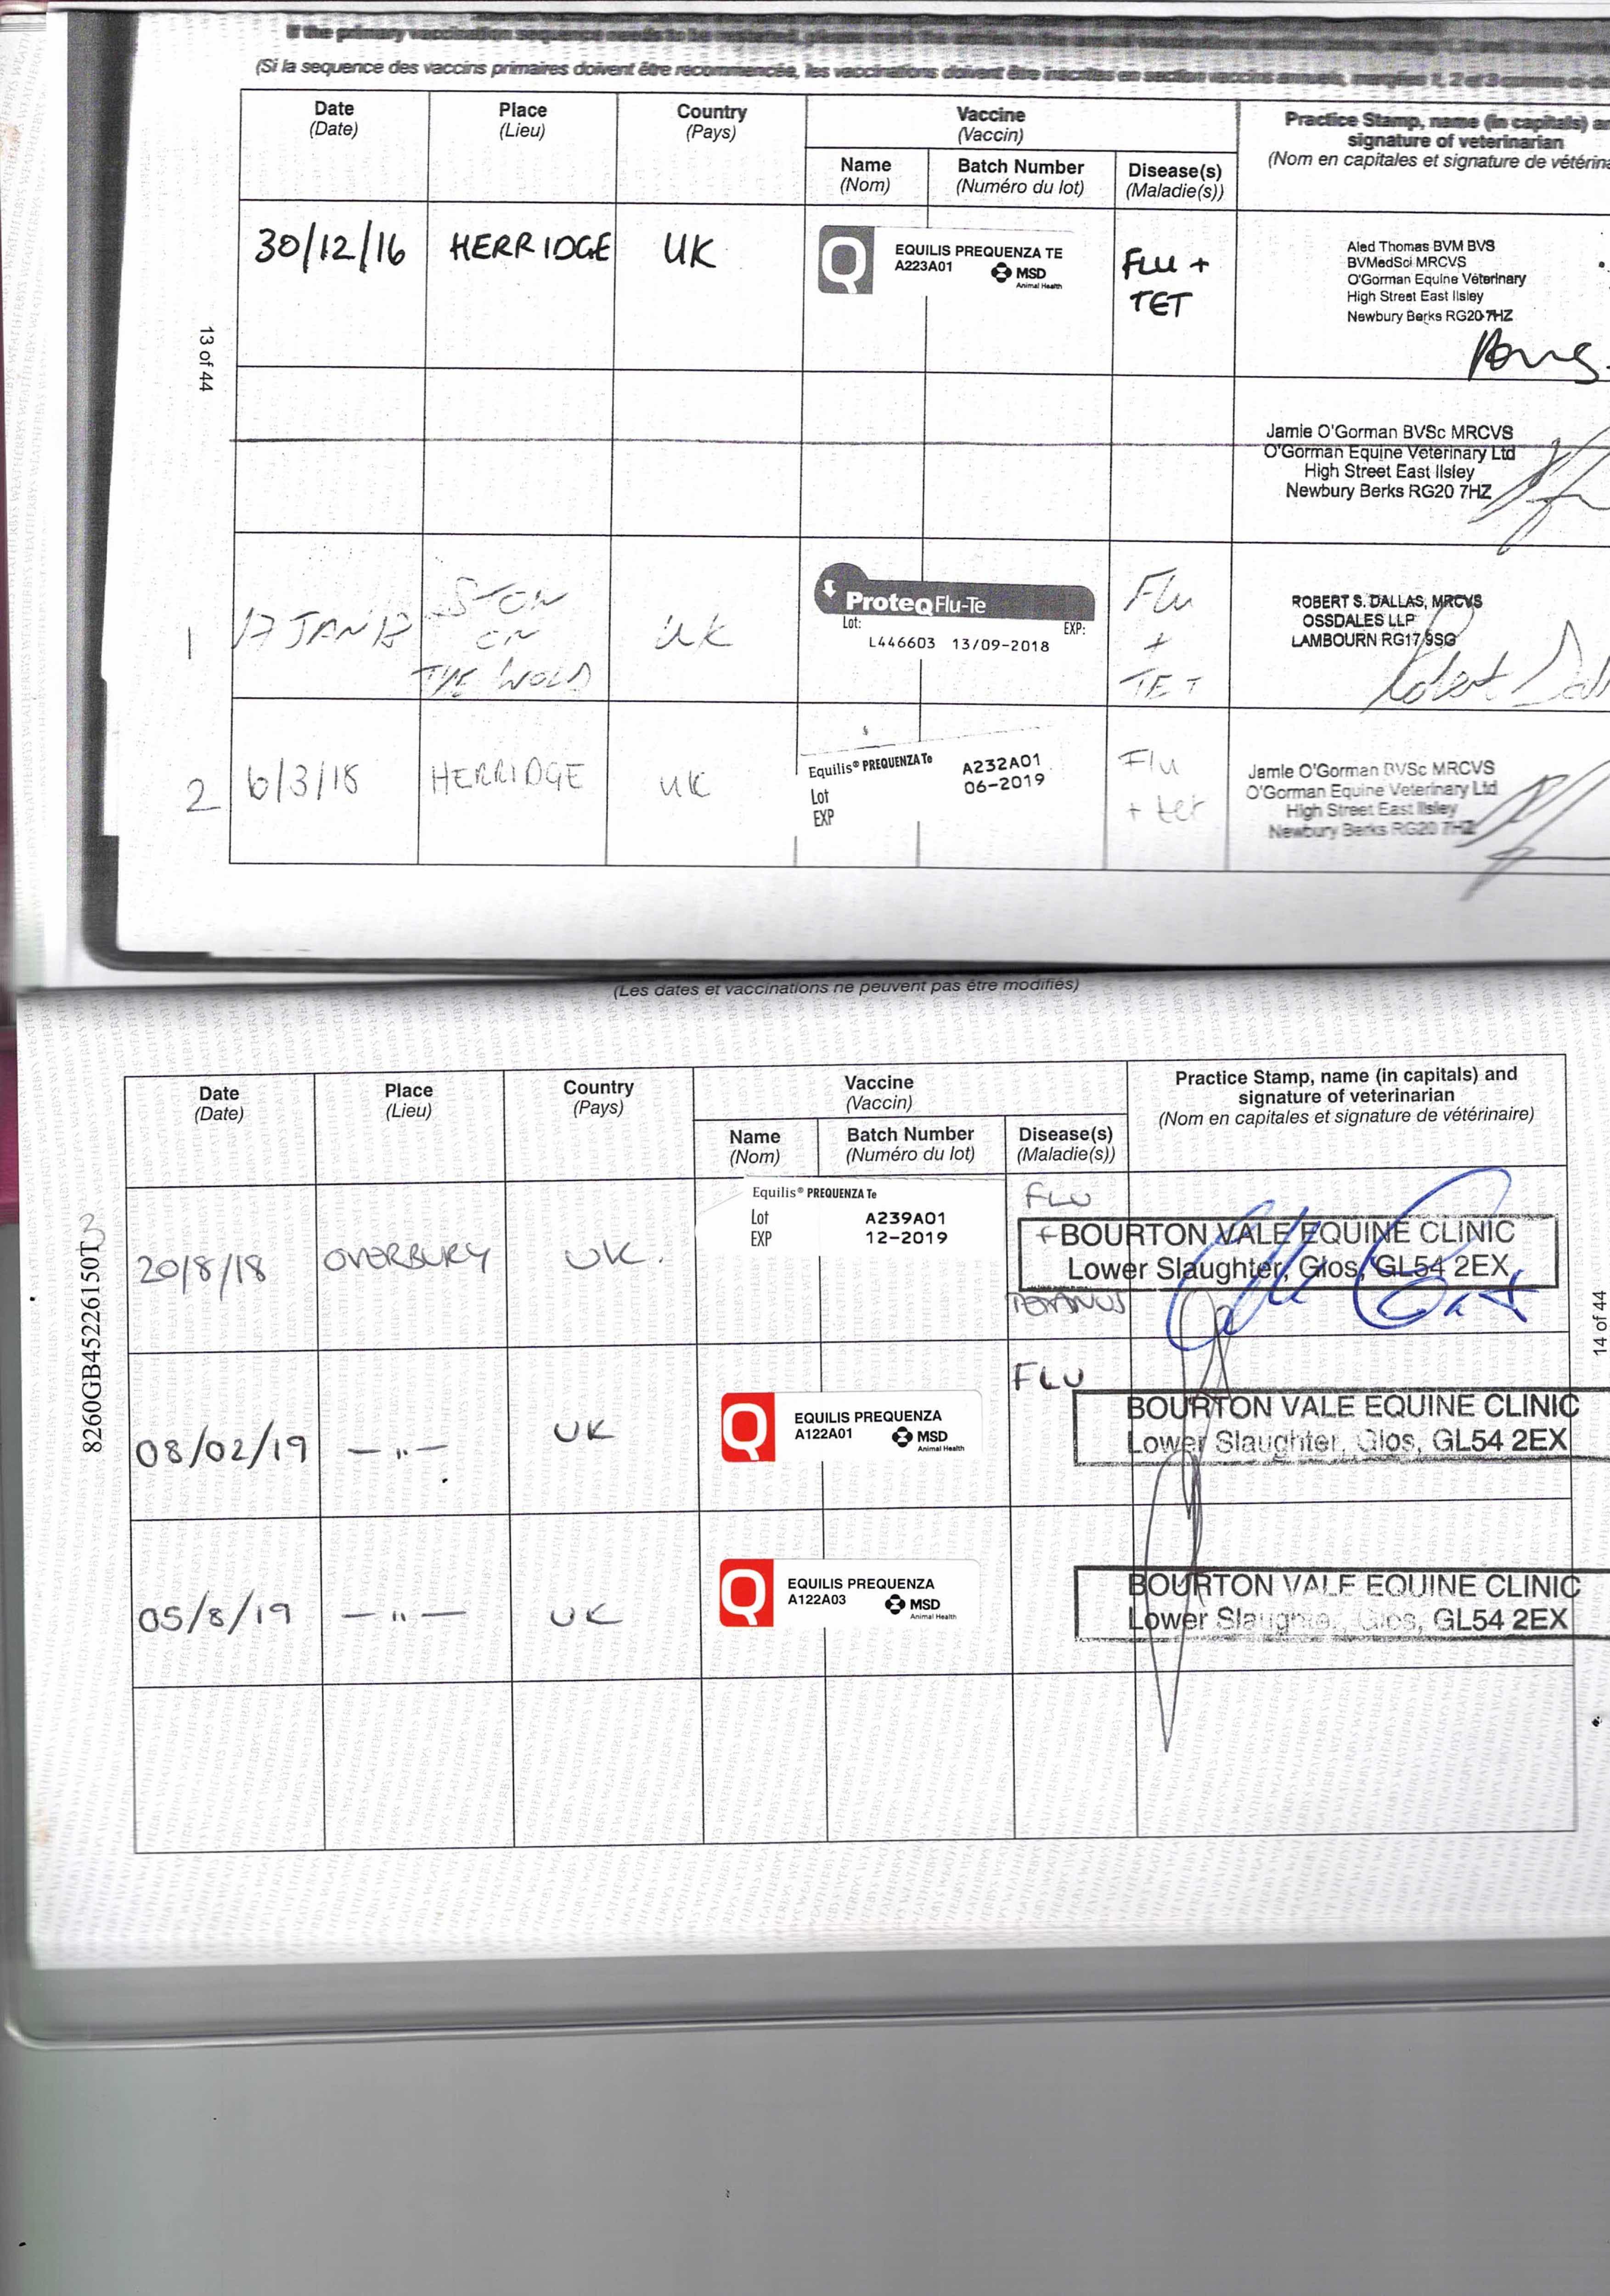 (Si la sequence des vaccins primaires doivent être recommencée, les vaccinations doivent être inscrites en section vaccins annuels, marquées 1, 2 et 3
Date
(Date)
Place
(Lieu)
Country
(Pays)
Vaccine
(Vaccin)
Name
(Nom)
Batch Number
(Numéro du lot)
Disease(s)
(Maladie(s))
Practice Stamp, name (in capitals)
signature of veterinarian
(Nom en capitales et signature de
13 of 44
30/12/16
HERRIDGE
UK
Q
EQUILIS PREQUENZA TE
A223A01
MSD
Animal Health
FLU +
TET
Aled Thomas BVM BVS
BVMedSci MRCVS
O'Gorman Equine Veterinary
High Street East Ilsley
Newbury Berks RG20 7HZ
Jamie O'Gorman BVSc MRCVS
O'Gorman Equine Veterinary Ltd
High Street East Ilsley
Newbury Berks RG20 7HZ
1
17 JAN
ON
THE WOLD
UK
ProteqFlu-Te
Lot:
EXP:
L446603 13/09-2018
Flu
+
TET
ROBERT S. DALLAS, MRCVS
OSSDALES LLP
LAMBOURN RG17 9SG
Robert
2
6/3/18
HERRIDGE
UK
Equilis® PREQUENZA Te
Lot
EXP
A232A01
06-2019
Flu
+ tet
Jamie O'Gorman BVSc MRCVS
O'Gorman Equine Veterinary Ltd
High Street East Ilsley
Newbury Berks RG20 7HZ
(Les dates et vaccinations ne peuvent pas être modifiés)
Date
(Date)
Place
(Lieu)
Country
(Pays)
Vaccine
(Vaccin)
Name
(Nom)
Batch Number
(Numéro du lot)
Disease(s)
(Maladie(s))
Practice Stamp, name (in capitals) and
signature of veterinarian
(Nom en capitales et signature de vétérinaire)
8260GB45226150T
14 of 44
3
20/8/18
OVERBURY
UK.
Equilis® PREQUENZA Te
Lot
A239A01
EXP
12-2019
FLU
+
TETANUS
BOURTON VALE EQUINE CLINIC
Lower Slaughter, Glos, GL54 2EX
08/02/19
— " —
UK
Q
EQUILIS PREQUENZA
A122A01
MSD
Animal Health
FLU
BOURTON VALE EQUINE CLINIC
Lower Slaughter, Glos, GL54 2EX
05/8/19
— " —
UK
Q
EQUILIS PREQUENZA
A122A03
MSD
Animal Health
BOURTON VALE EQUINE CLINIC
Lower Slaughter, Glos, GL54 2EX